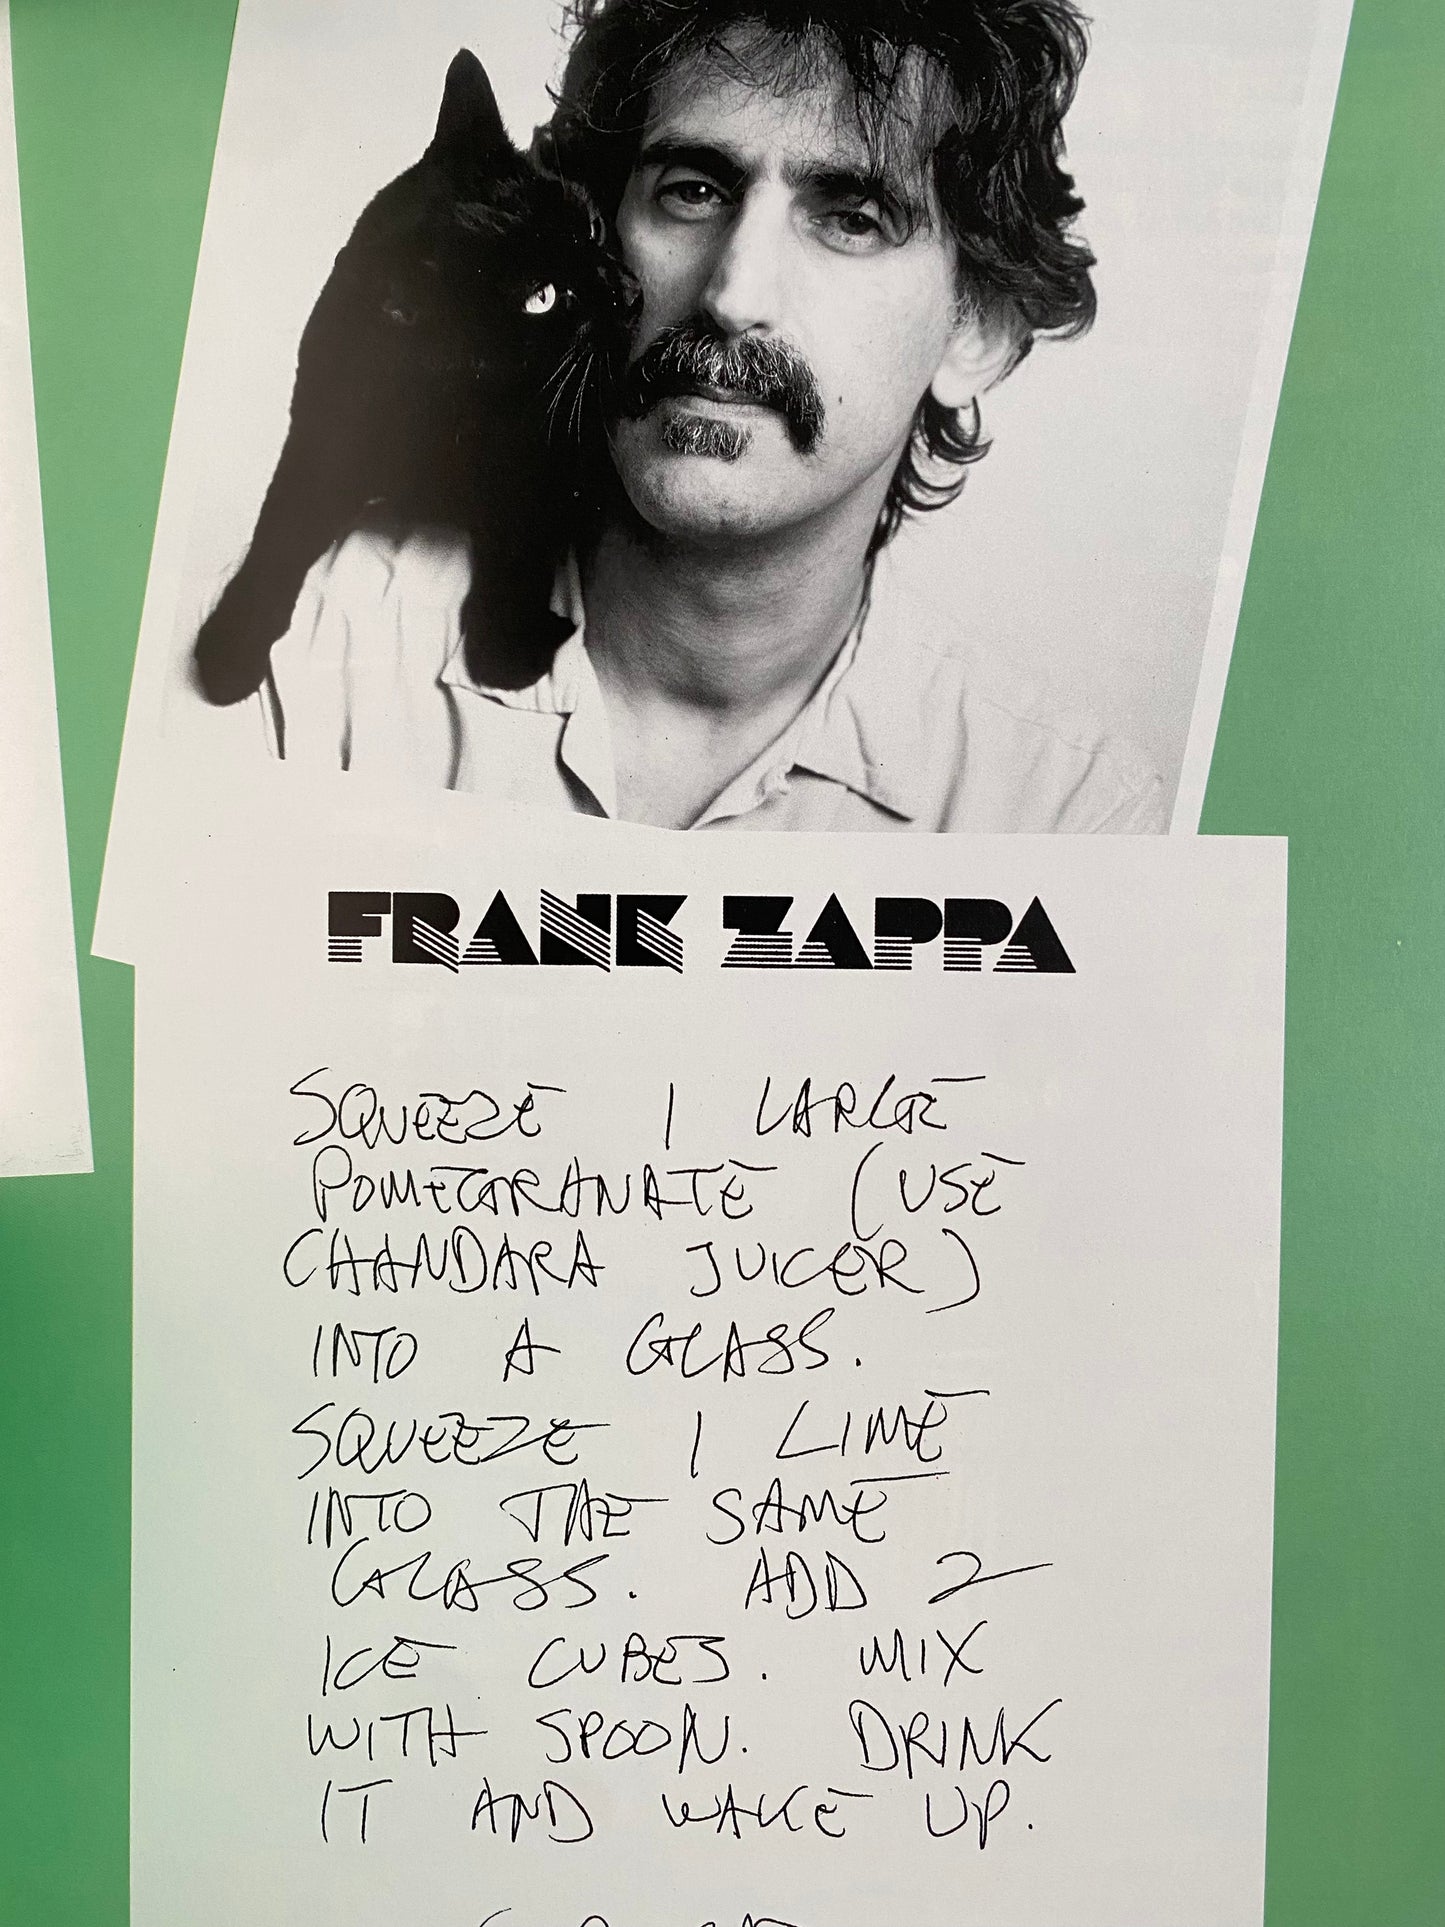 FRANK ZAPPA
SQUEEZE 1 LARGE
POMEGRANATE (USE
CHANDARA JUICER)
INTO A GLASS.
SQUEEZE 1 LIME
INTO THE SAME
GLASS. ADD 2
ICE CUBES. MIX
WITH SPOON. DRINK
IT AND WAKE UP.